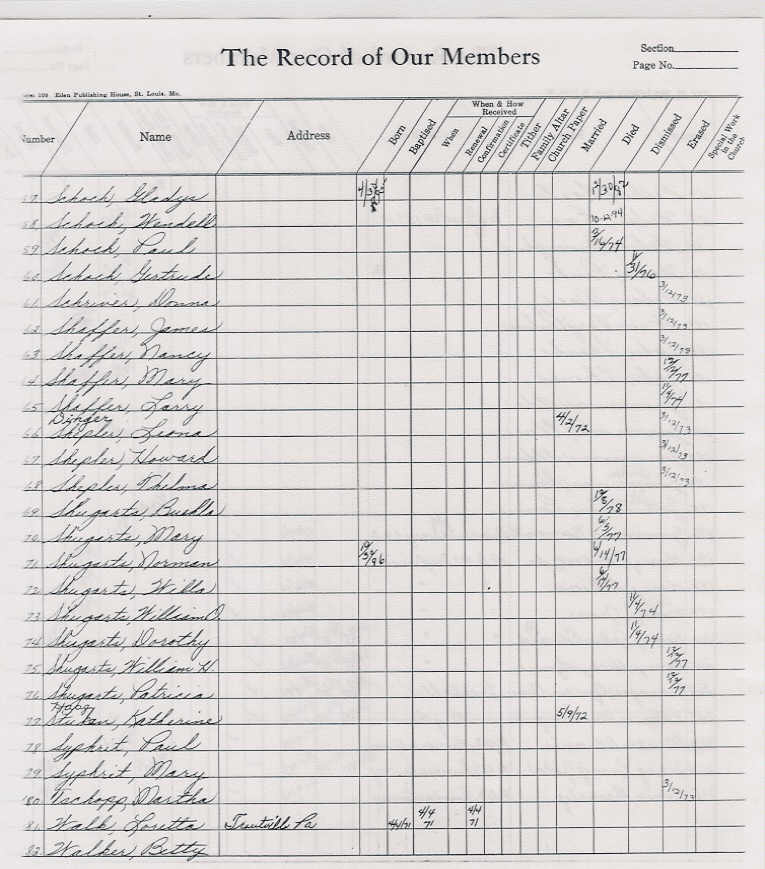 The Record of Our Members
Section
Page No.
109 Eden Publishing House, St. Louis, Mo.
Number Name Address Born Baptised When & How Received When Renewal Confirmation Certificate Tither Family Altar Church Paper Married Died Dismissed Erased Special Work in the Church
57 Schock, Gladys
58 Schock, Wendell 10-12-94
59 Schock, Paul 2/16/74
60 Schock, Gertrude 11/31/76
61 Schriver, Donna 3/12/73
62 Shaffer, James 3/12/73
63 Shaffer, Nancy 3/12/73
64 Shaffer, Mary 12/12/77
65 Shaffer, Larry 11/4/74
Dinger
66 Shepler, Leona 4/2/72 3/12/73
67 Shepler, Howard 3/12/73
68 Shepler, Thelma 3/12/73
69 Shugarts, 12/8/78
70 Shugarts, Mary 6/5/77
71 Shugarts, Norman 4/14/77
72 Shugarts, Willa
73 Shugarts, William O. 11/4/74
74 Shugarts, Dorothy 11/9/74
75 Shugarts, William H. 12/12/77
76 Shugarts, Patricia 12/12/77
77 Katherine 5/9/72
78 Syphrit, Paul
79 Syphrit, Mary
80 Tschopp, Martha 3/12/73
81 Walk, Loretta Troutville Pa 4/4/71 4/4 71 4/4 71
82 Walker, Betty